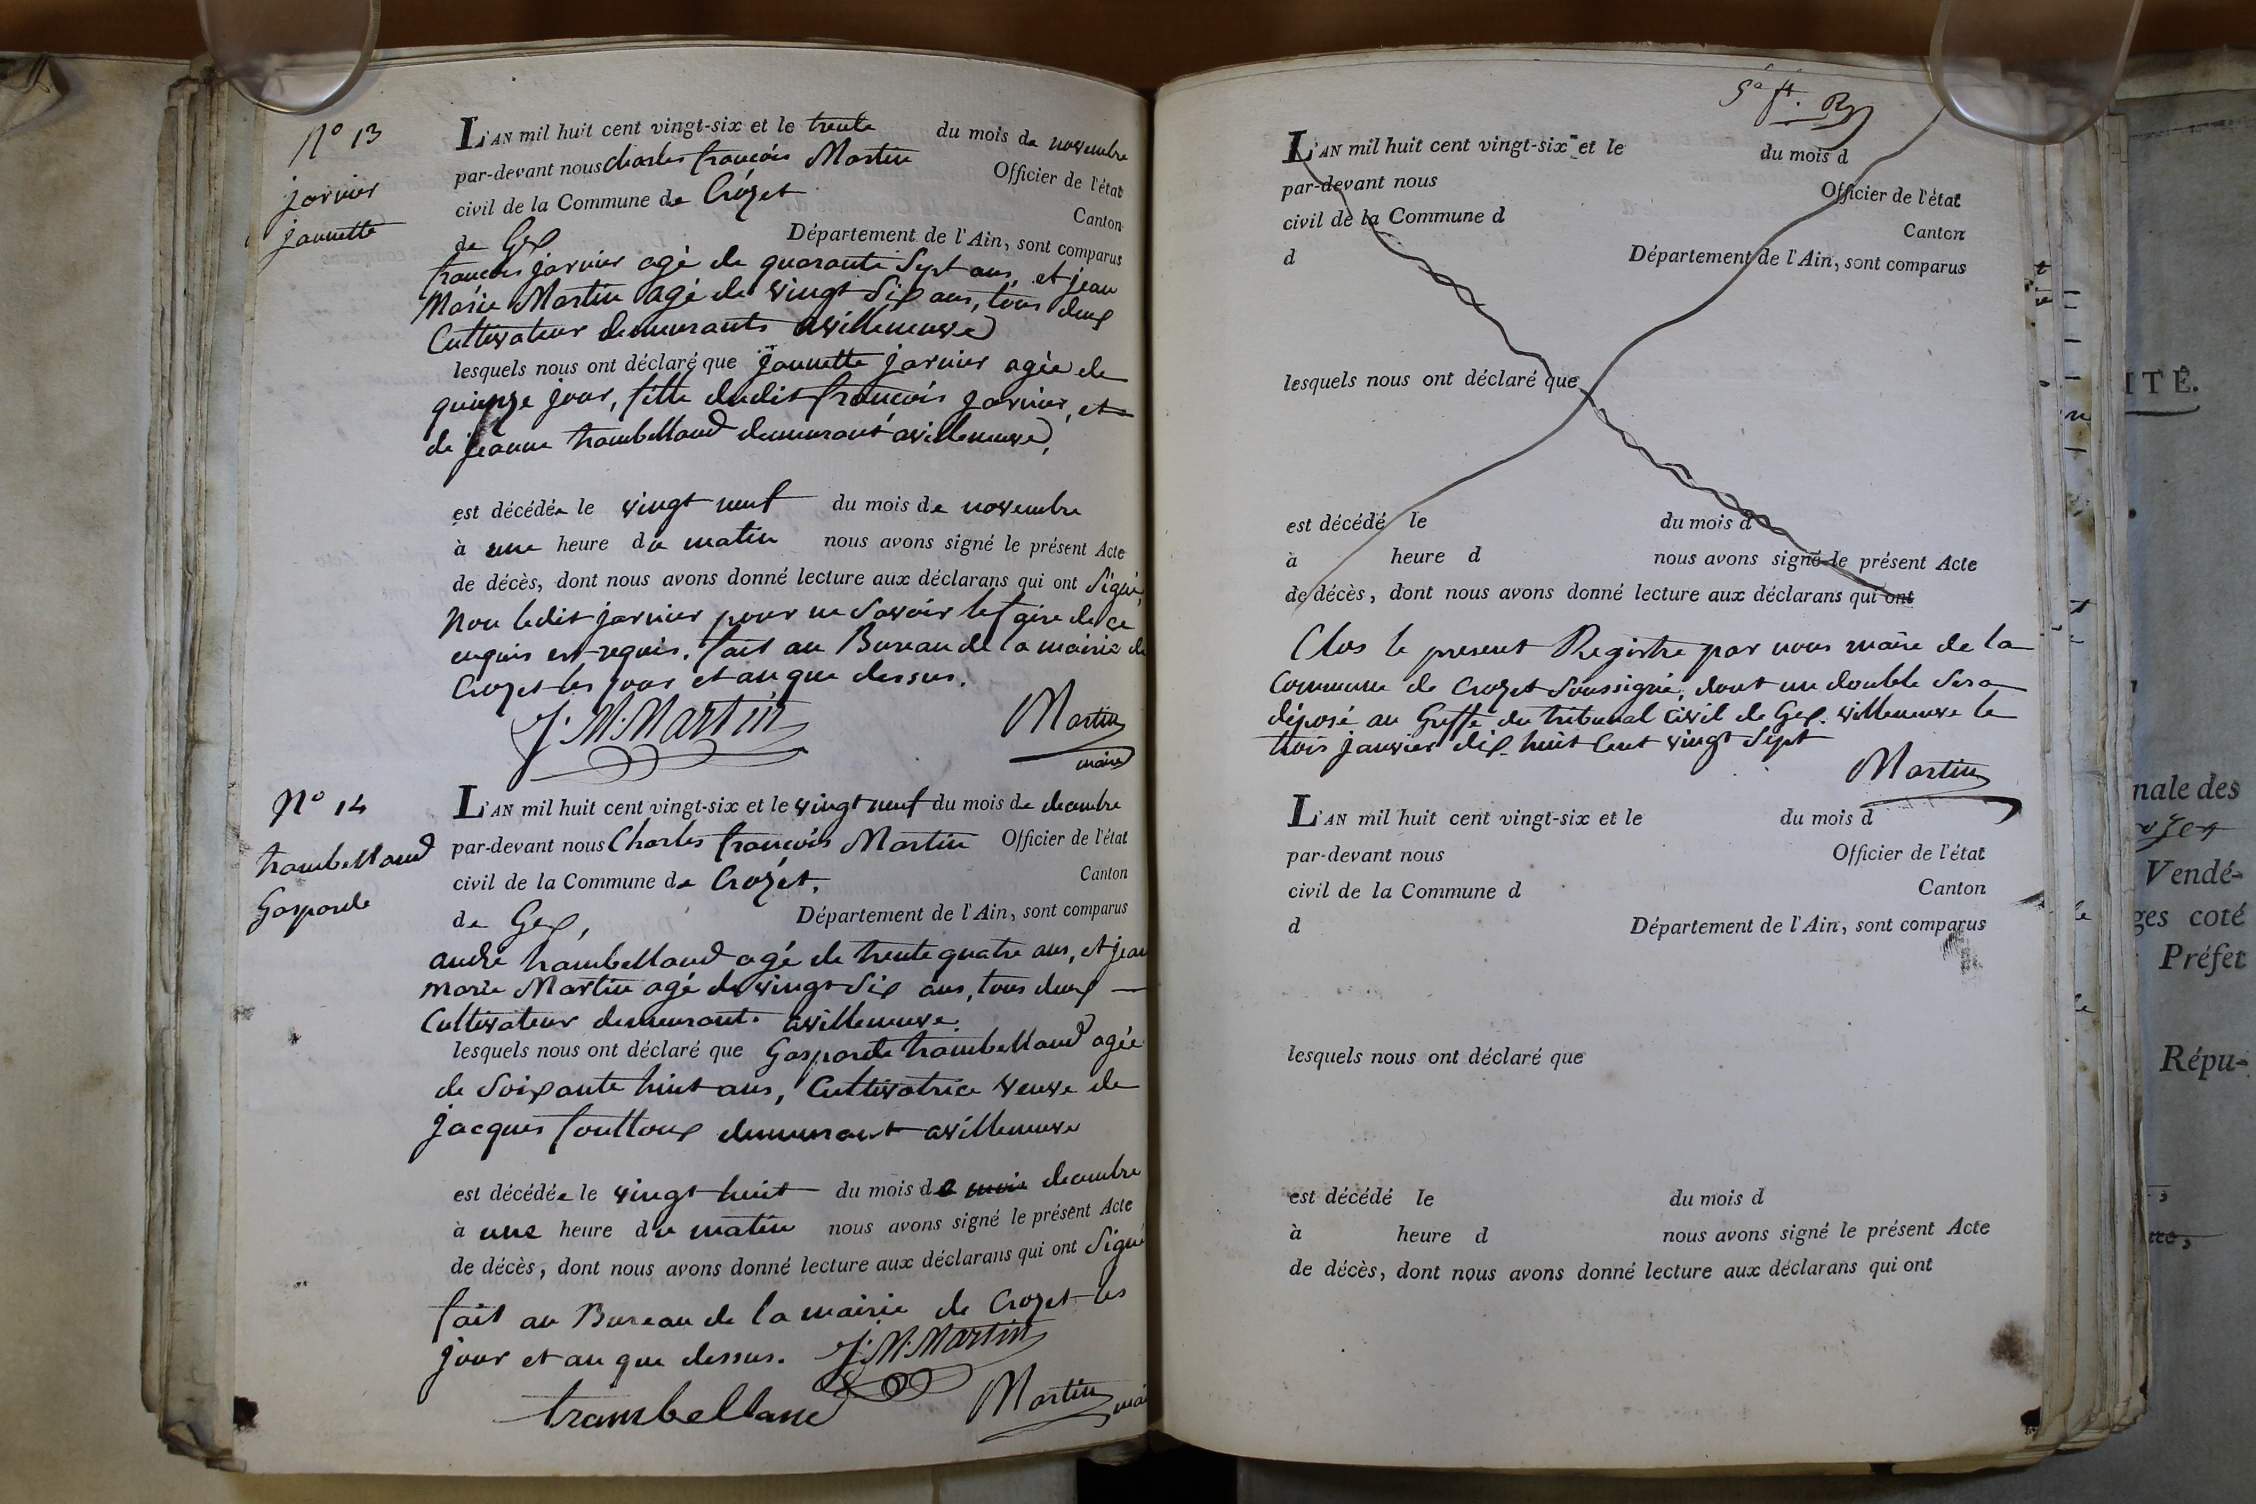 N° 13
jarnier
jannette
L'AN mil huit cent vingt-six et le trente du mois de novembre
par-devant nous charles françois Martin Officier de l'état
civil de la Commune de Crozet Canton
de Gex Département de l'Ain, sont comparus
françois jarnier agé de quarante Sept ans, et jean
Marie Martin agé de vingt Six ans, tous deux
Cultivateur demeurants avilleneuve
lesquels nous ont déclaré que jannette jarnier agée de
quinze jour, fille dudit françois jarnier, et
de jeanne trambelland demeurant avilleneuve,
est décédée le vingt neuf du mois de novembre
à une heure du matin nous avons signé le présent Acte
de décès, dont nous avons donné lecture aux déclarans qui ont Signé,
Non ledit jarnier pour ne Savoir le faire de ce
enquis est requis. fait au Bureau de la mairie de
Crozet les jour et an que dessus.
J. M. Martin
Martin
maire
N° 14
trambelland
Gasparde
L'AN mil huit cent vingt-six et le vingt neuf du mois de decembre
par-devant nous Charles françois Martin Officier de l'état
civil de la Commune de Crozet. Canton
de Gex, Département de l'Ain, sont comparus
andré trambelland agé de trente quatre ans, et jean
marie Martin agé de vingt Six ans, tous deux
Cultivateur demeurant avilleneuve.
lesquels nous ont déclaré que Gasparde trambelland agée
de Soixante huit ans, Cultivatrice veuve de
jacques fouilloux demeurant avilleneuve
est décédée le vingt huit du mois de decembre
à une heure du matin nous avons signé le présent Acte
de décès, dont nous avons donné lecture aux déclarans qui ont Signé
fait au Bureau de la mairie de Crozet les
jour et an que dessus. J. M. Martin
trambelland Martin
L'AN mil huit cent vingt-six et le du mois d
par-devant nous Officier de l'état
civil de la Commune d Canton
d Département de l'Ain, sont comparus
lesquels nous ont déclaré que
est décédé le du mois d
à heure d nous avons signé le présent Acte
de décès, dont nous avons donné lecture aux déclarans qui ont
Clos le present Registre par nous maire de la
Commune de Crozet Soussigné, dont un double Sera
déposé au Greffe du tribunal Civil de Gex. villeneuve le
trois janvier dix huit Cent vingt Sept
Martin
L'AN mil huit cent vingt-six et le du mois d
par-devant nous Officier de l'état
civil de la Commune d Canton
d Département de l'Ain, sont comparus
lesquels nous ont déclaré que
est décédé le du mois d
à heure d nous avons signé le présent Acte
de décès, dont nous avons donné lecture aux déclarans qui ont
ITÉ.
nale des
Vendé-
ges coté
Préfet
Répu-